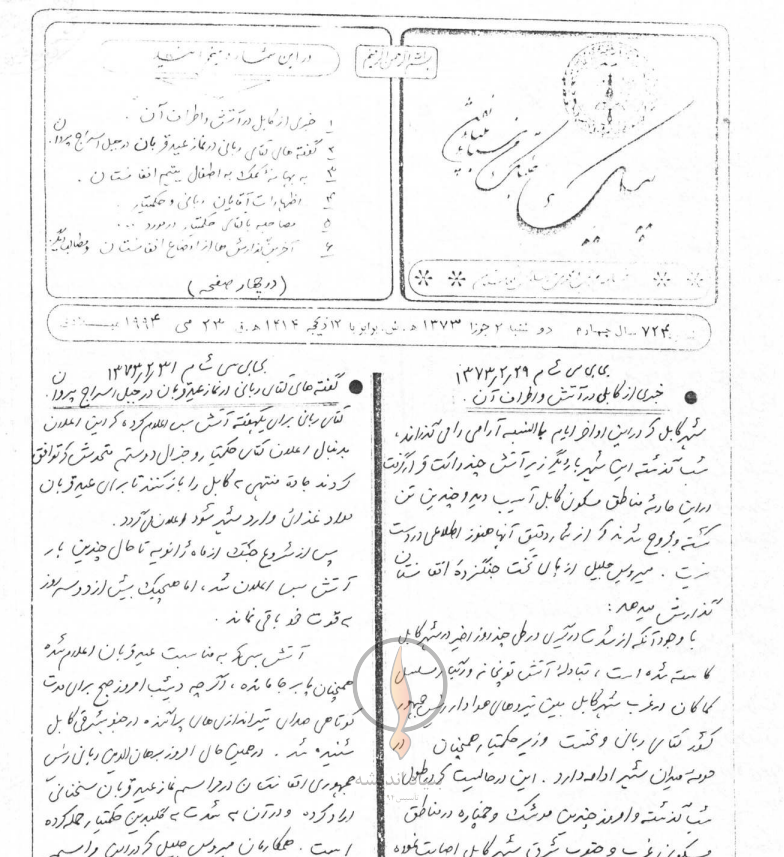 بسم الله الرحمن الرحیم
پیام
در این شماره میخوانید
۱ خبری از کابل در آتش و اطراف آن .
۲ گفته های آقای ربانی در نماز عید قربان در جبل السراج پروان .
۳ به بهانه کمک به اطفال یتیم افغانستان .
۴ اظهارات آقایان ربانی و حکمتیار .
۵ مصاحبه با آقای حکمتیار در مورد ...
۶ آخرین گزارش ها از اوضاع افغانستان و مطالب دیگر
(در چهار صفحه)
۷۲۴ سال چهارم دوشنبه ۲ جوزا ۱۳۷۳ هـ ش، برابر با ۱۲ ذیحجه ۱۴۱۴ هـ ق ۲۳ می ۱۹۹۴ میلادی
بی بی سی شام ۱۳۷۳٫۲٫۲۹
خبری از کابل در آتش و اطراف آن .
شهر کابل که در این اواخر ایام بالنسبه آرامی را می گذراند ،
شب گذشته این شهر بار دیگر زیر آتش چند راکت قرار گرفت
در این حادثه مناطق مسکون کابل آسیب دید و چندین تن
کشته و مجروح شدند که از شمار دقیق آنها هنوز اطلاعی در دست
نیست . میرویس جلیل از پایتخت جنگزده افغانستان
گزارش میدهد :
با وجود آنکه از شدت درگیری در طی چند روز اخیر در شهر کابل
کاسته شده است ، تبادله آتش توپخانه و آتشبار مسلسل
کماکان در غرب شهر کابل بین نیروهای هوادار رئیس جمهور
کشور آقای ربانی و نخست وزیر حکمتیار همچنان در
حومه میدان شهر ادامه دارد . این در حالیست که در طول
شب گذشته و امروز چندین موشک و خمپاره در مناطق
مسکونی غرب و جنوب شرق شهر کابل اصابت نموده
بی بی سی شام ۱۳۷۳٫۲٫۳۱
گفته های آقای ربانی در نماز عید قربان در جبل السراج پروان .
آقای ربانی برای یکهفته آتش بس اعلام کرد ، که این اعلان
بدنبال اعلان آقای حکمتیار و جنرال دوستم متحدش که توافق
کردند جاده منتهی به کابل را باز کنند تا برای عید قربان
مواد غذائی وارد شهر شود اعلان میگردد .
پس از شروع جنگ از ماه ژانویه تا حال چندین بار
آتش بس اعلان شد ، اما هیچیک بیش از دو سه روز
به قوت خود باقی نماند .
آتش بسی که به مناسبت عید قربان اعلام شده
همچنان پا برجا مانده ، اگر چه دیشب امروز صبح برای مدت
کوتاهی صدای تیراندازی های پراکنده در جنوب شرقی کابل
شنیده شد . در همین حال امروز برهان الدین ربانی رئیس
جمهوری افغانستان در مراسم نماز عید قربان سخنانی
ایراد کرده و در آن به شدت به گلبدین حکمتیار حمله کرده
است . همکارمان میرویس جلیل که در این مراسم